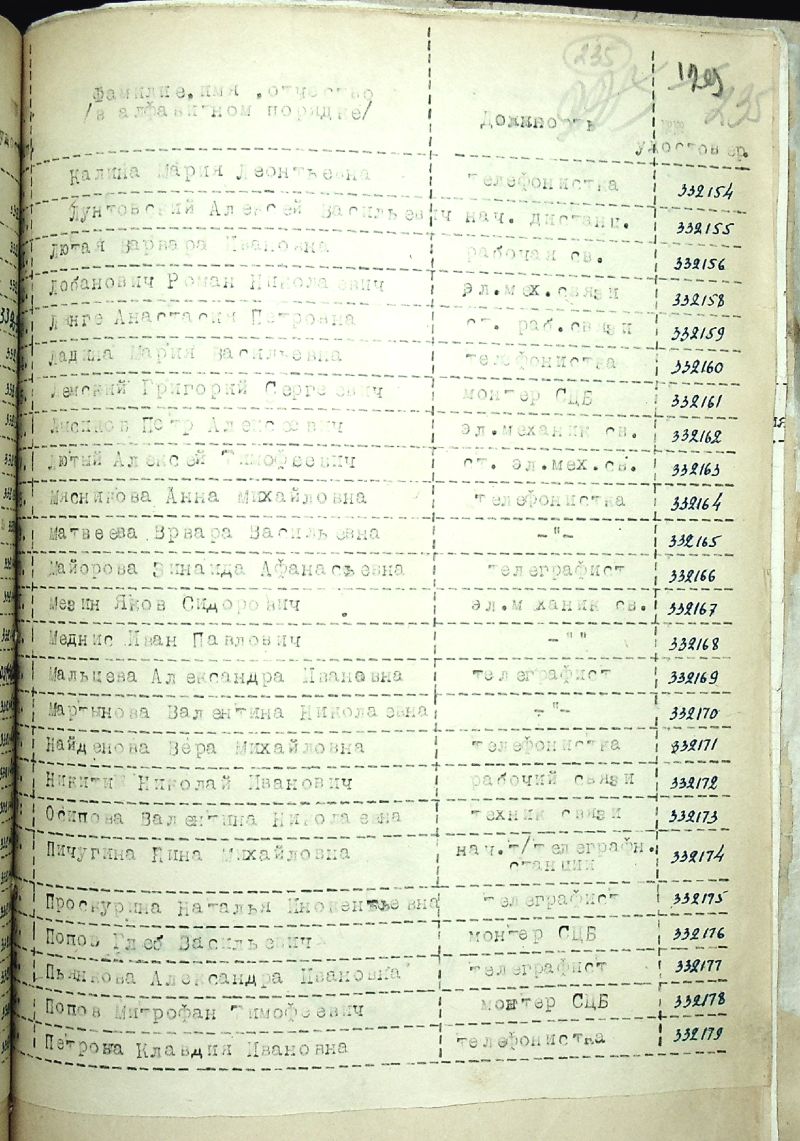 235
1295
235
Фамилие, имя , отчество
/в алфавитном порядке/
Должность
№№
удостовер.
Калина Мария Леонтьевна телефонистка 332154
Лунтовский Алексей Васильевич нач. дистанц. 332155
Лютая Варвара Ивановна рабочая св. 332156
Лобанович Роман Николаевич эл.мех.связи 332158
Ланге Анастасия Петровна ст. раб.связи 332159
Ладина Мария Васильевна телефониства 332160
Лемский Григорий Сергеевич монтер СЦБ 332161
Петр Алексеевич эл.механик св. 332162
Лютый Алексей Тимофеевич ст. эл.мех.св. 332163
Мясникова Анна Михайловна телефонистка 332164
Матвеева Врвара Васильевна -"- 332165
Майорова Зинаида Афанасьевна телеграфист 332166
Мезин Яков Сидорович эл.м ханик св. 332167
Меднис Иван Павлович -"" 332168
Мальцева Александра Ивановна телеграфист 332169
Мартынова Валентина Николаевна -"- 332170
Найденова Вера Михайловна телефонистка 332171
Никити Николай Иванович рабочий связи 332172
Осипова Валентина Николаевна техник связи 332173
Пичугина Нина Михайловна нач.т/телеграфн.
станции 332174
Проскурина Наталья Инокентьевна телеграфист 332175
Попов Глеб Васильевич монтер СЦБ 332176
Пьянкова Александра Ивановна телеграфист 332177
Попов Митрофан Тимофеевич монтер СЦБ 332178
Петрова Клавдия Ивановна телефонистка 332179